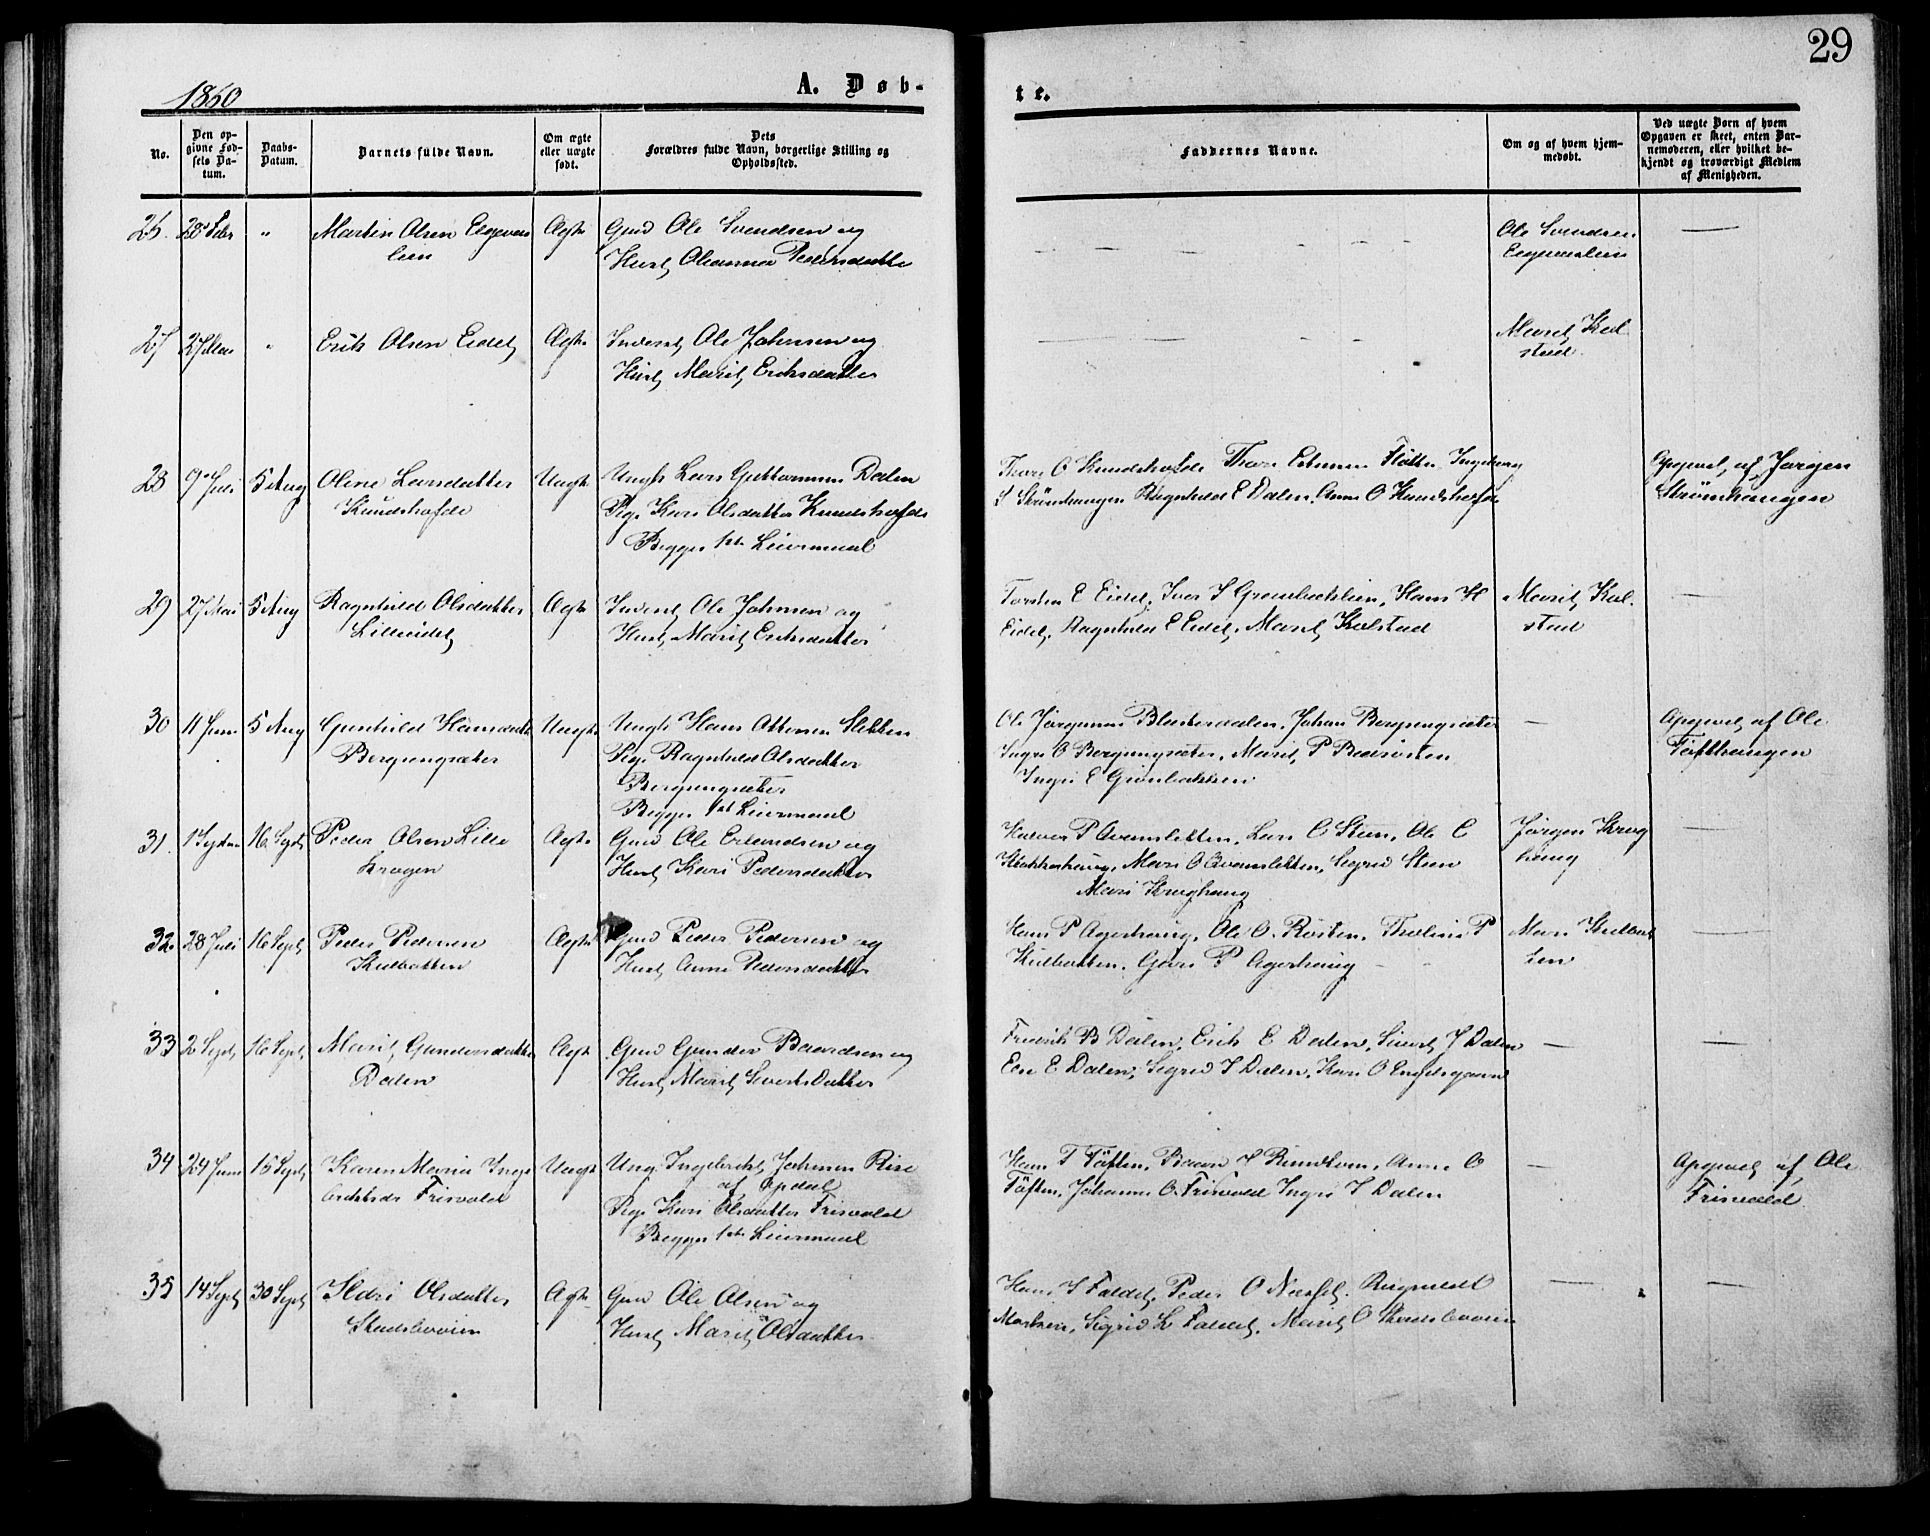 29
1860
A. Døb-
te.
No.
Den op-
givne Fød-
sels Da-
tum.
Daabs-
Datum.
Barnets fulde Navn.
Om ægte
eller uægte
født.
Dets
Forældres fulde Navn, borgerlige Stilling og
Opholdssted.
Faddernes Navne.
Om og af hvem hjem-
medøbt.
Ved uægte Børn af hvem
Opgaven er skeet, enten Bar-
nemoderen, eller hvilket be-
kjendt og troværdigt Medlem
af Menigheden.
26. 28 Febr " Martin Olsen
lien
Ægte Gmd Ole Svendsen og
Hust Oleanna Pedersdatter
Ole Svendsen
27 " Erik Olsen Eidet Ægte Inderst Ole Johnsen og
Hust Marit Eriksdatter
Marit Kol
stad
28 9 Juli 5 Aug Oline Larsdatter
Kundshofde
Uægte Ungk Lars Guttormsen Dalen
Pige Kari Olsdatter Kundshofde
Begges 1ste Leiermaal
Thore O Kundshofde Thore Fløtten Ingeborg
S Strømhaugen Ragnhild E Dalen, Anne O Kundshofde
Opgivet af Jørgen
Strømhaugen
29 27 Mai 5 Aug Ragnhild Olsdatter
Lilleeidet
Ægte Inderst Ole Johnsen og
Hust Marit Eriksdatter
Torsten E Eidet, Iver I Grønbakken, Hans H
Eidet, Ragnhild E Eidet, Marit Kolstad
Marit Kol-
stad
30 11 Juni 5 Aug Gunhild Hansdatter
Bergengsæter
Uægte Ungk Hans Ottesen Sletten
Pige Ragnhild Olsdatter
Bergengsæter
Begges 1ste Leiermaal
Ole Jørgensen, Johan Bergengsæter
Ingri O Bergengsæter, Marit P
Ingri E Grønbakken
Opgivet af Ole
Tøfthaugen
31. 1 Septbr 16 Sept Peder Olsen Lille
Krogen
Ægte Gmd Ole Erlandsen og
Hust Kari Pedersdatter
Halvor P Avemsletten, Lars E Steen, Ole E
Mari O Avemsletten, Sigrid Steen
Mari Kroghaug
Jørgen Krog
haug
32. 28 Juli 16 Sept Peder Pedersen
Kulbotten
Ægte Gmd Peder Pedersen og
Hust Anne Pedersdatter
Hans P Agerhaug, Ole O. Rosten, P
Kulbotten, P Agerhaug
Mari Kulbot
ten
33 2 Sept 16 Sept Marit Gundersdatter
Dalen
Ægte Gmd Gunder Baardsen og
Hust Marit Sivertsdatter
Fredrik B Dalen, Erik E Dalen, Sivert J Dalen
E Dalen, Sigrid J Dalen, Kari O Engelsgaard
34 24 Juni 15 Sept Karen Maria Inge
brektsdr Frisvold
Uægte Ung. Ingebrikt Johnsen Rise
af Opdal
Pige Kari Olsdatter Frisvold
Begges 1ste Leiermaal
Hans T Tøften, Anne O
Tøften, Johanne O. Frisvold Ingri J Dalen
Opgivet af Ole
Frisvold
35 14 Sept 30 Sept Ildri Olsdatter
Ægte Gmd Ole Olsen og
Hust Marit Olsdatter
Hans J Faldet, Peder O Ragnild
Sigrid L Faldet, Marit O